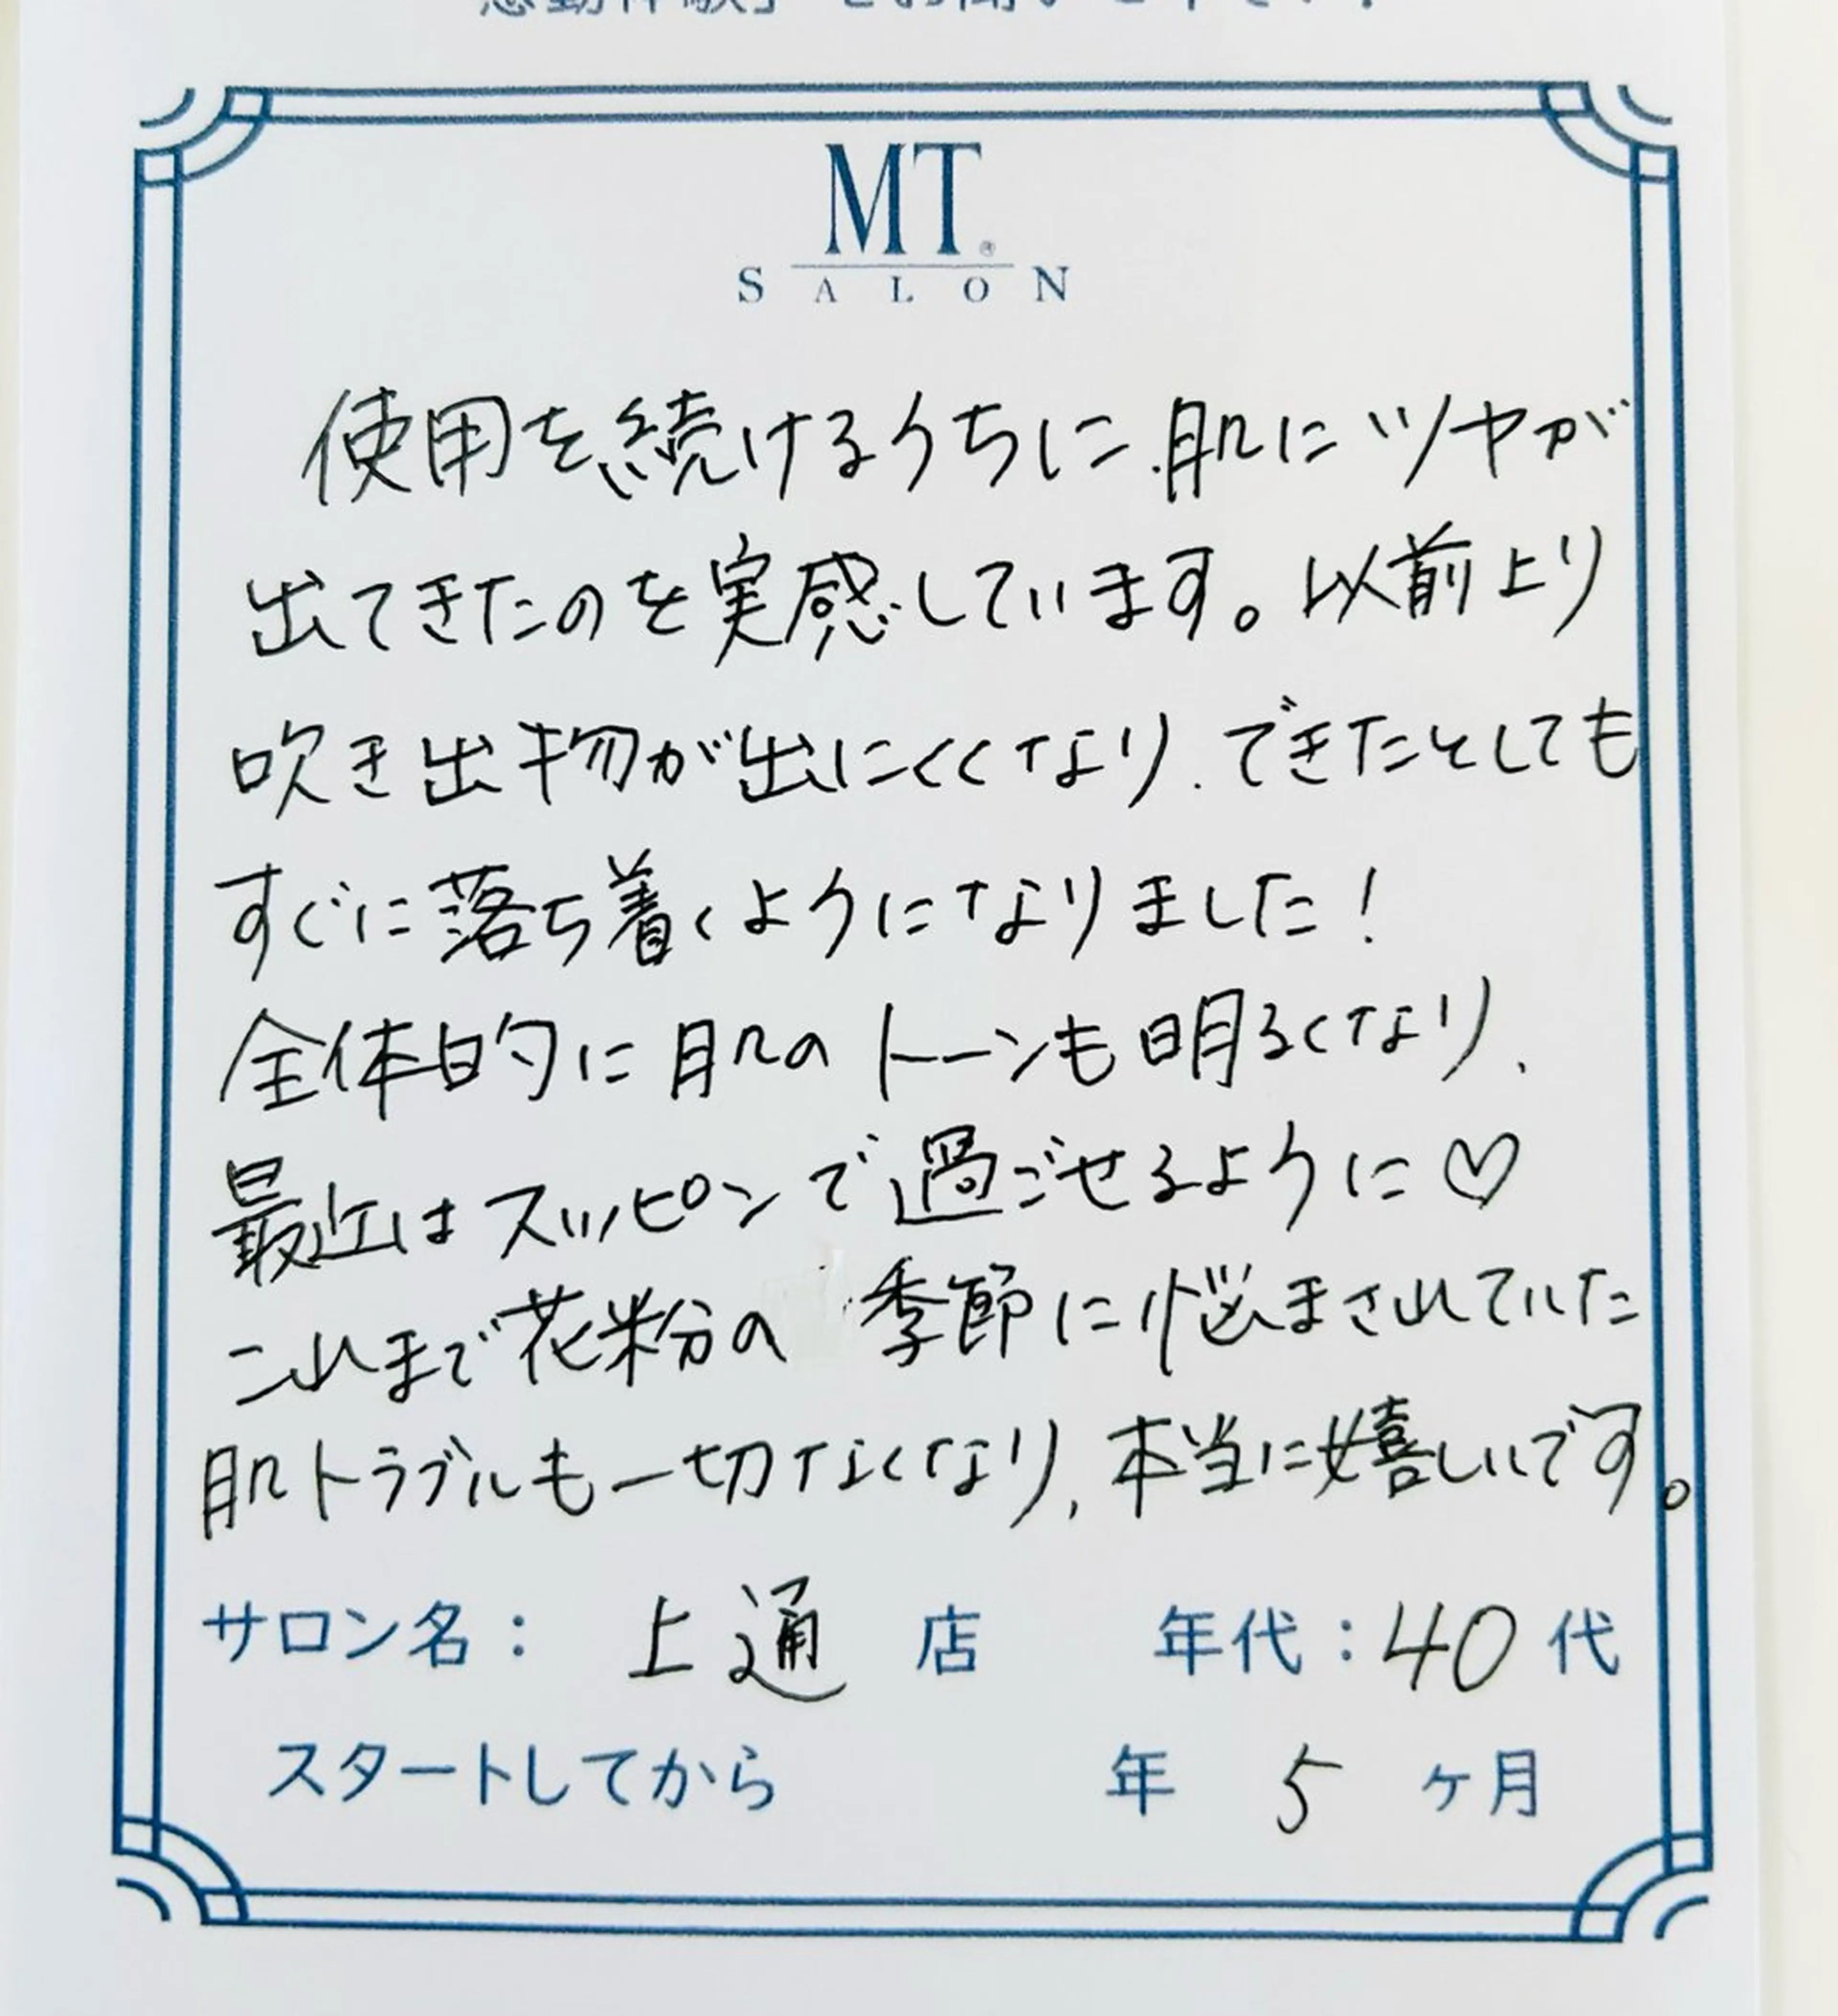 MT®
SALON
使用を続けるうちに、肌にツヤが
出てきたのを実感しています。以前より
吹き出物が出にくくなり、できたとしても
すぐに落ち着くようになりました！
全体的に肌のトーンも明るくなり、
最近はスッピンで過ごせるように♡
これまで花粉の季節に悩まされていた
肌トラブルも一切なくなり、本当に嬉しいです。
サロン名： 上通 店 年代：40代
スタートしてから 年 5 ヶ月